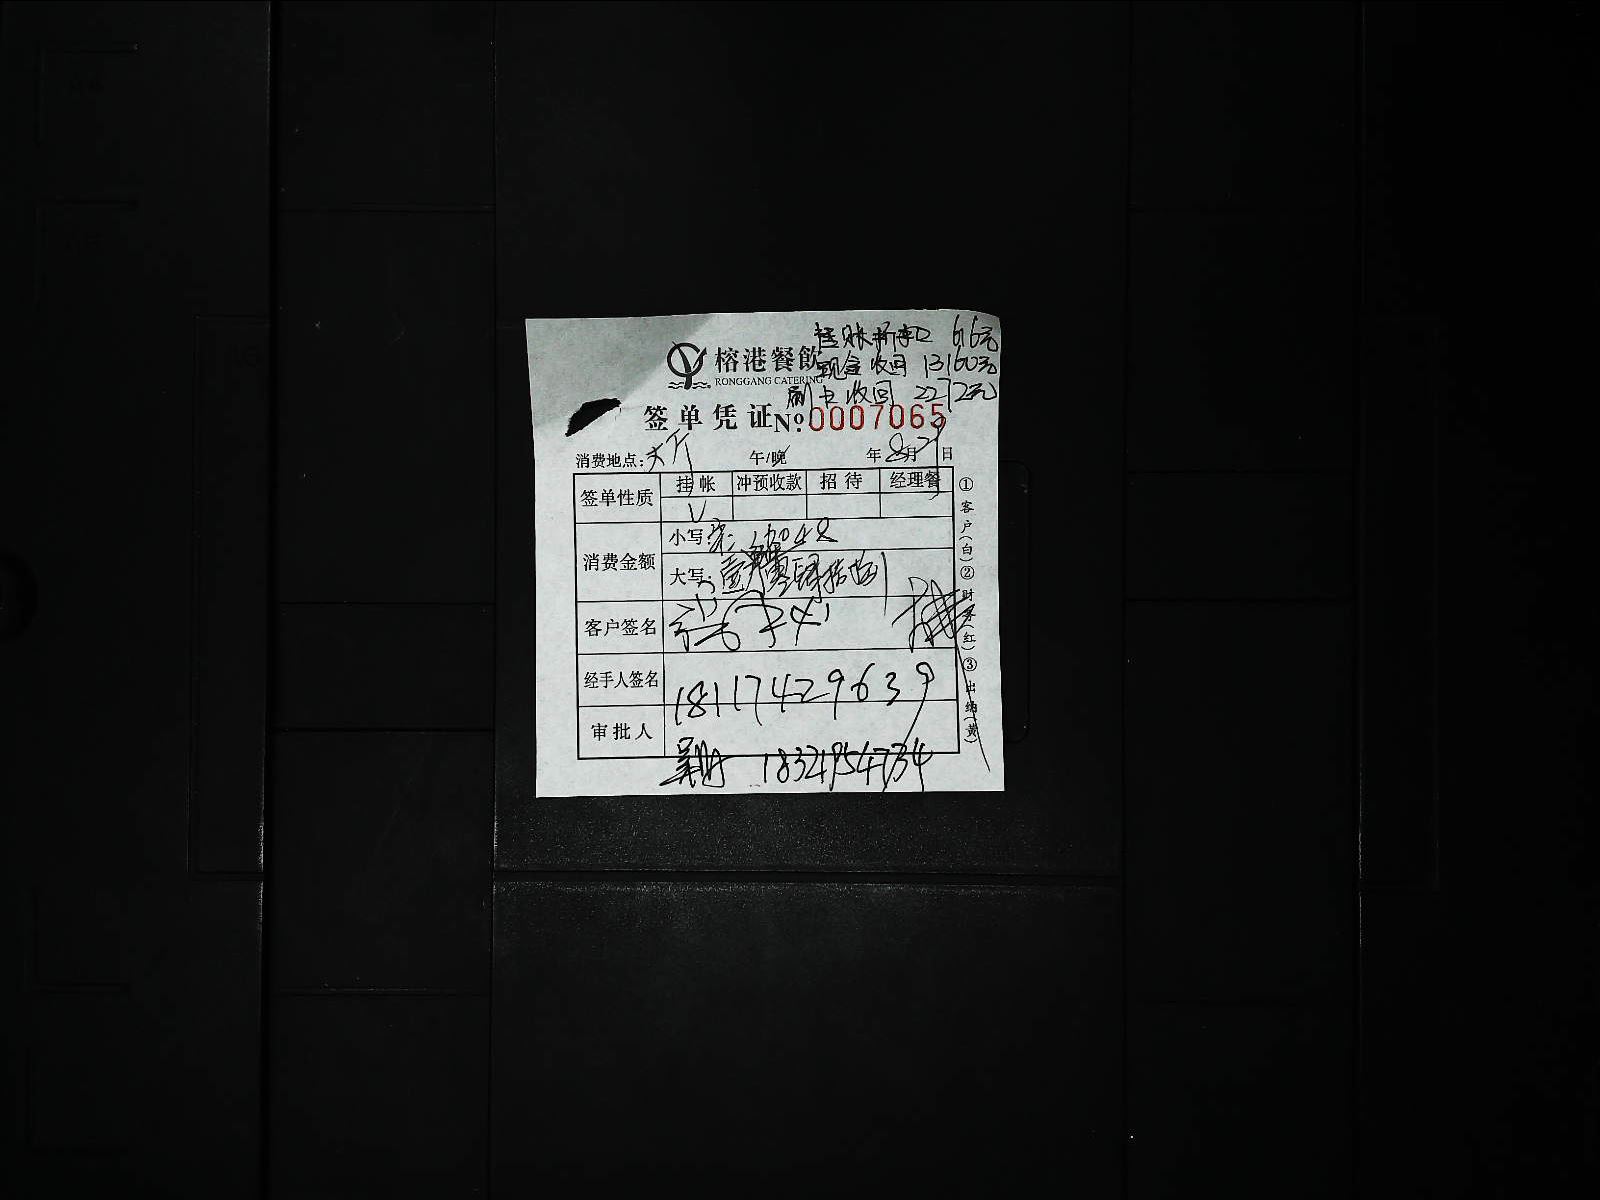 挂账折扣 616元
榕港餐飲 现金收回 13160元
RONGGANG CATERING
刷卡收回 2272元
签单凭证 №:0007065
消费地点:大厅 午/晚 年8月21日
签单性质 挂帐 冲预收款 招待 经理餐
V
消费金额 小写: 16048
大写:
客户签名
经手人签名 18117429639
审批人
18321954734
①客户(白)②财务(红)③出纳(黄)